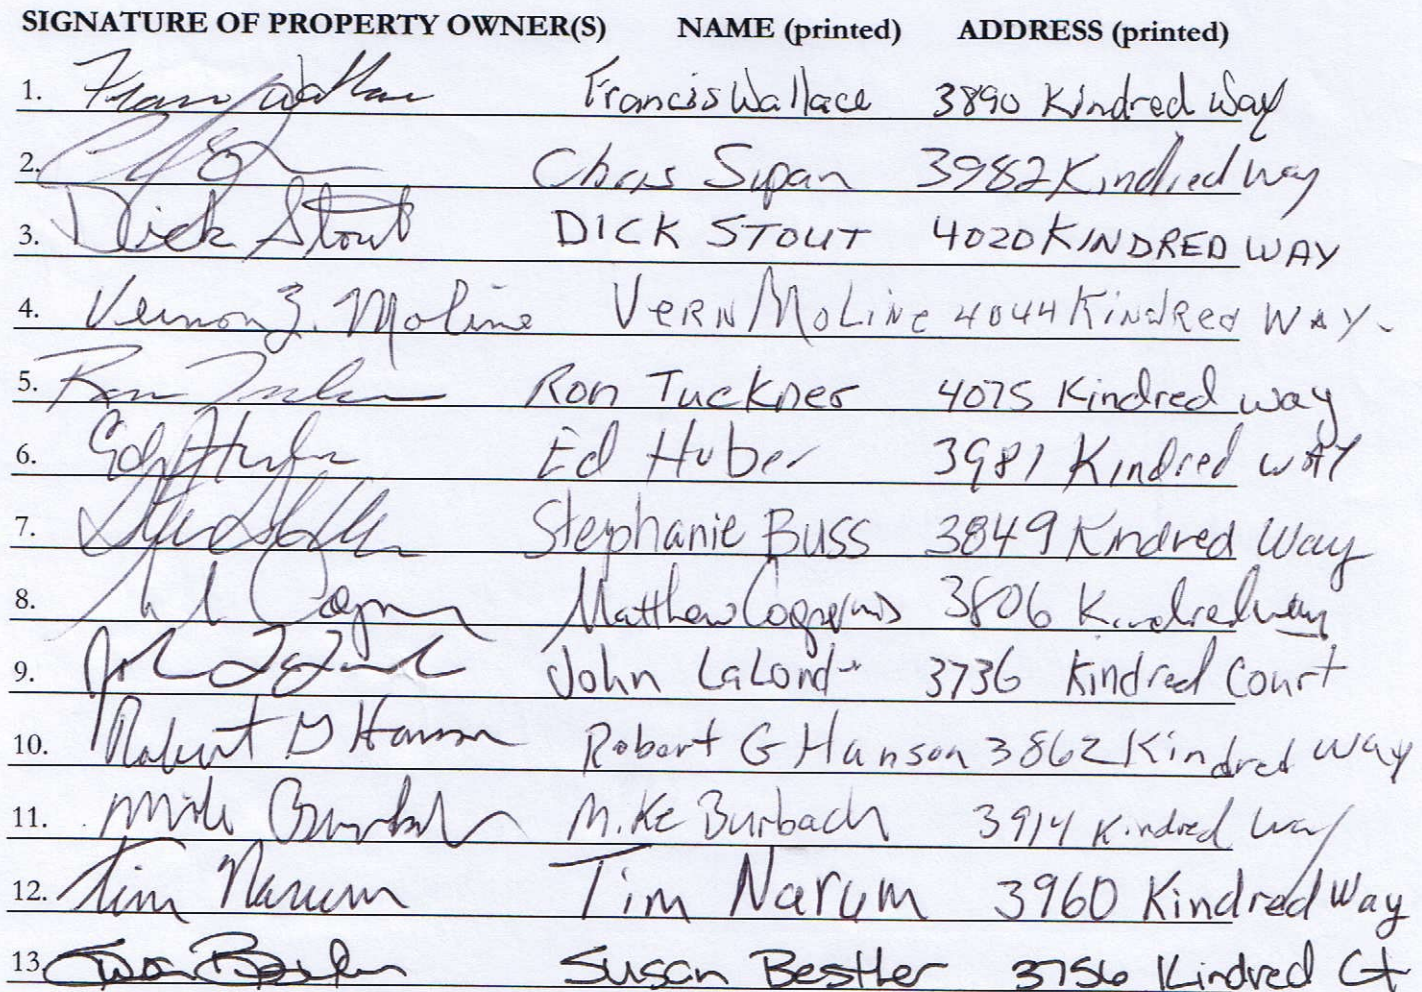 SIGNATURE OF PROPERTY OWNER(S) NAME (printed) ADDRESS (printed)
1. Francis Wallace 3890 Kindred Way
2. Chris Sipan 3982 Kindred way
3. Dick Stout DICK STOUT 4020 KINDRED WAY
4. Vernon J. Moline VERN MOLINE 4044 KINDRED WAY.
5. Ron Tuckner 4075 Kindred way
6. Ed Huber 3981 Kindred WAY
7. Stephanie Buss 3849 Kindred Way
8. Matthew 3806 Kindred way
9. John LaLonde 3736 Kindred Court
10. Robert G Hanson Robert G Hanson 3862 Kindred Way
11. Mike Burbach Mike Burbach 3914 Kindred Way
12. Tim Narum Tim Narum 3960 Kindred Way
13. Susan Bestler 3756 Kindred Ct